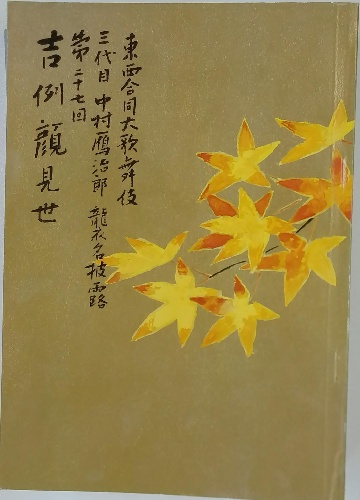 東西合同大歌舞伎
三代目 中村鴈治郎 襲名披露
第二十七回
吉例顔見世